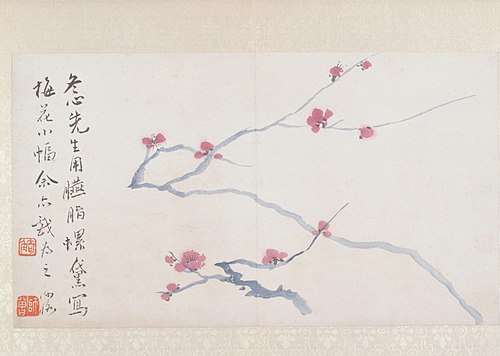 悆先生用臙脂螺黛寫
梅花小幅余亦戲為之